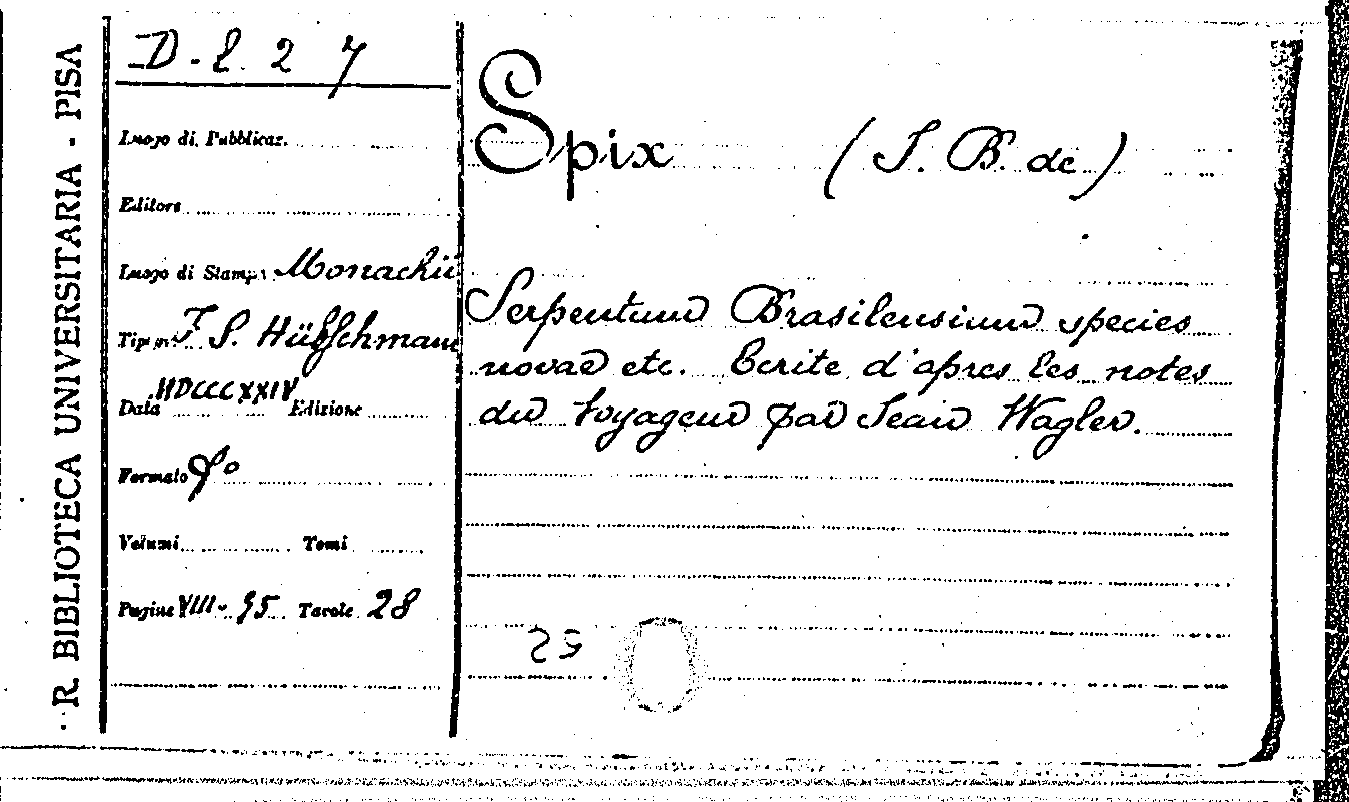 R. BIBLIOTECA UNIVERSITARIA - PISA
D. l. 2 7
Luogo di Pubblicaz.
Editore
Luogo di Stampa Monachii
Tip. F. S. Hübschmann
Data MDCCCXXIV Edizione
Formato 4°
Volumi Tomi
Pagine VIII - 95 Tavole 28
Spix (J. B. de)
Serpentum Brasilensium species
novae etc. Ecrite d'apres les notes
du Voyageur par Jean Wagler.
25